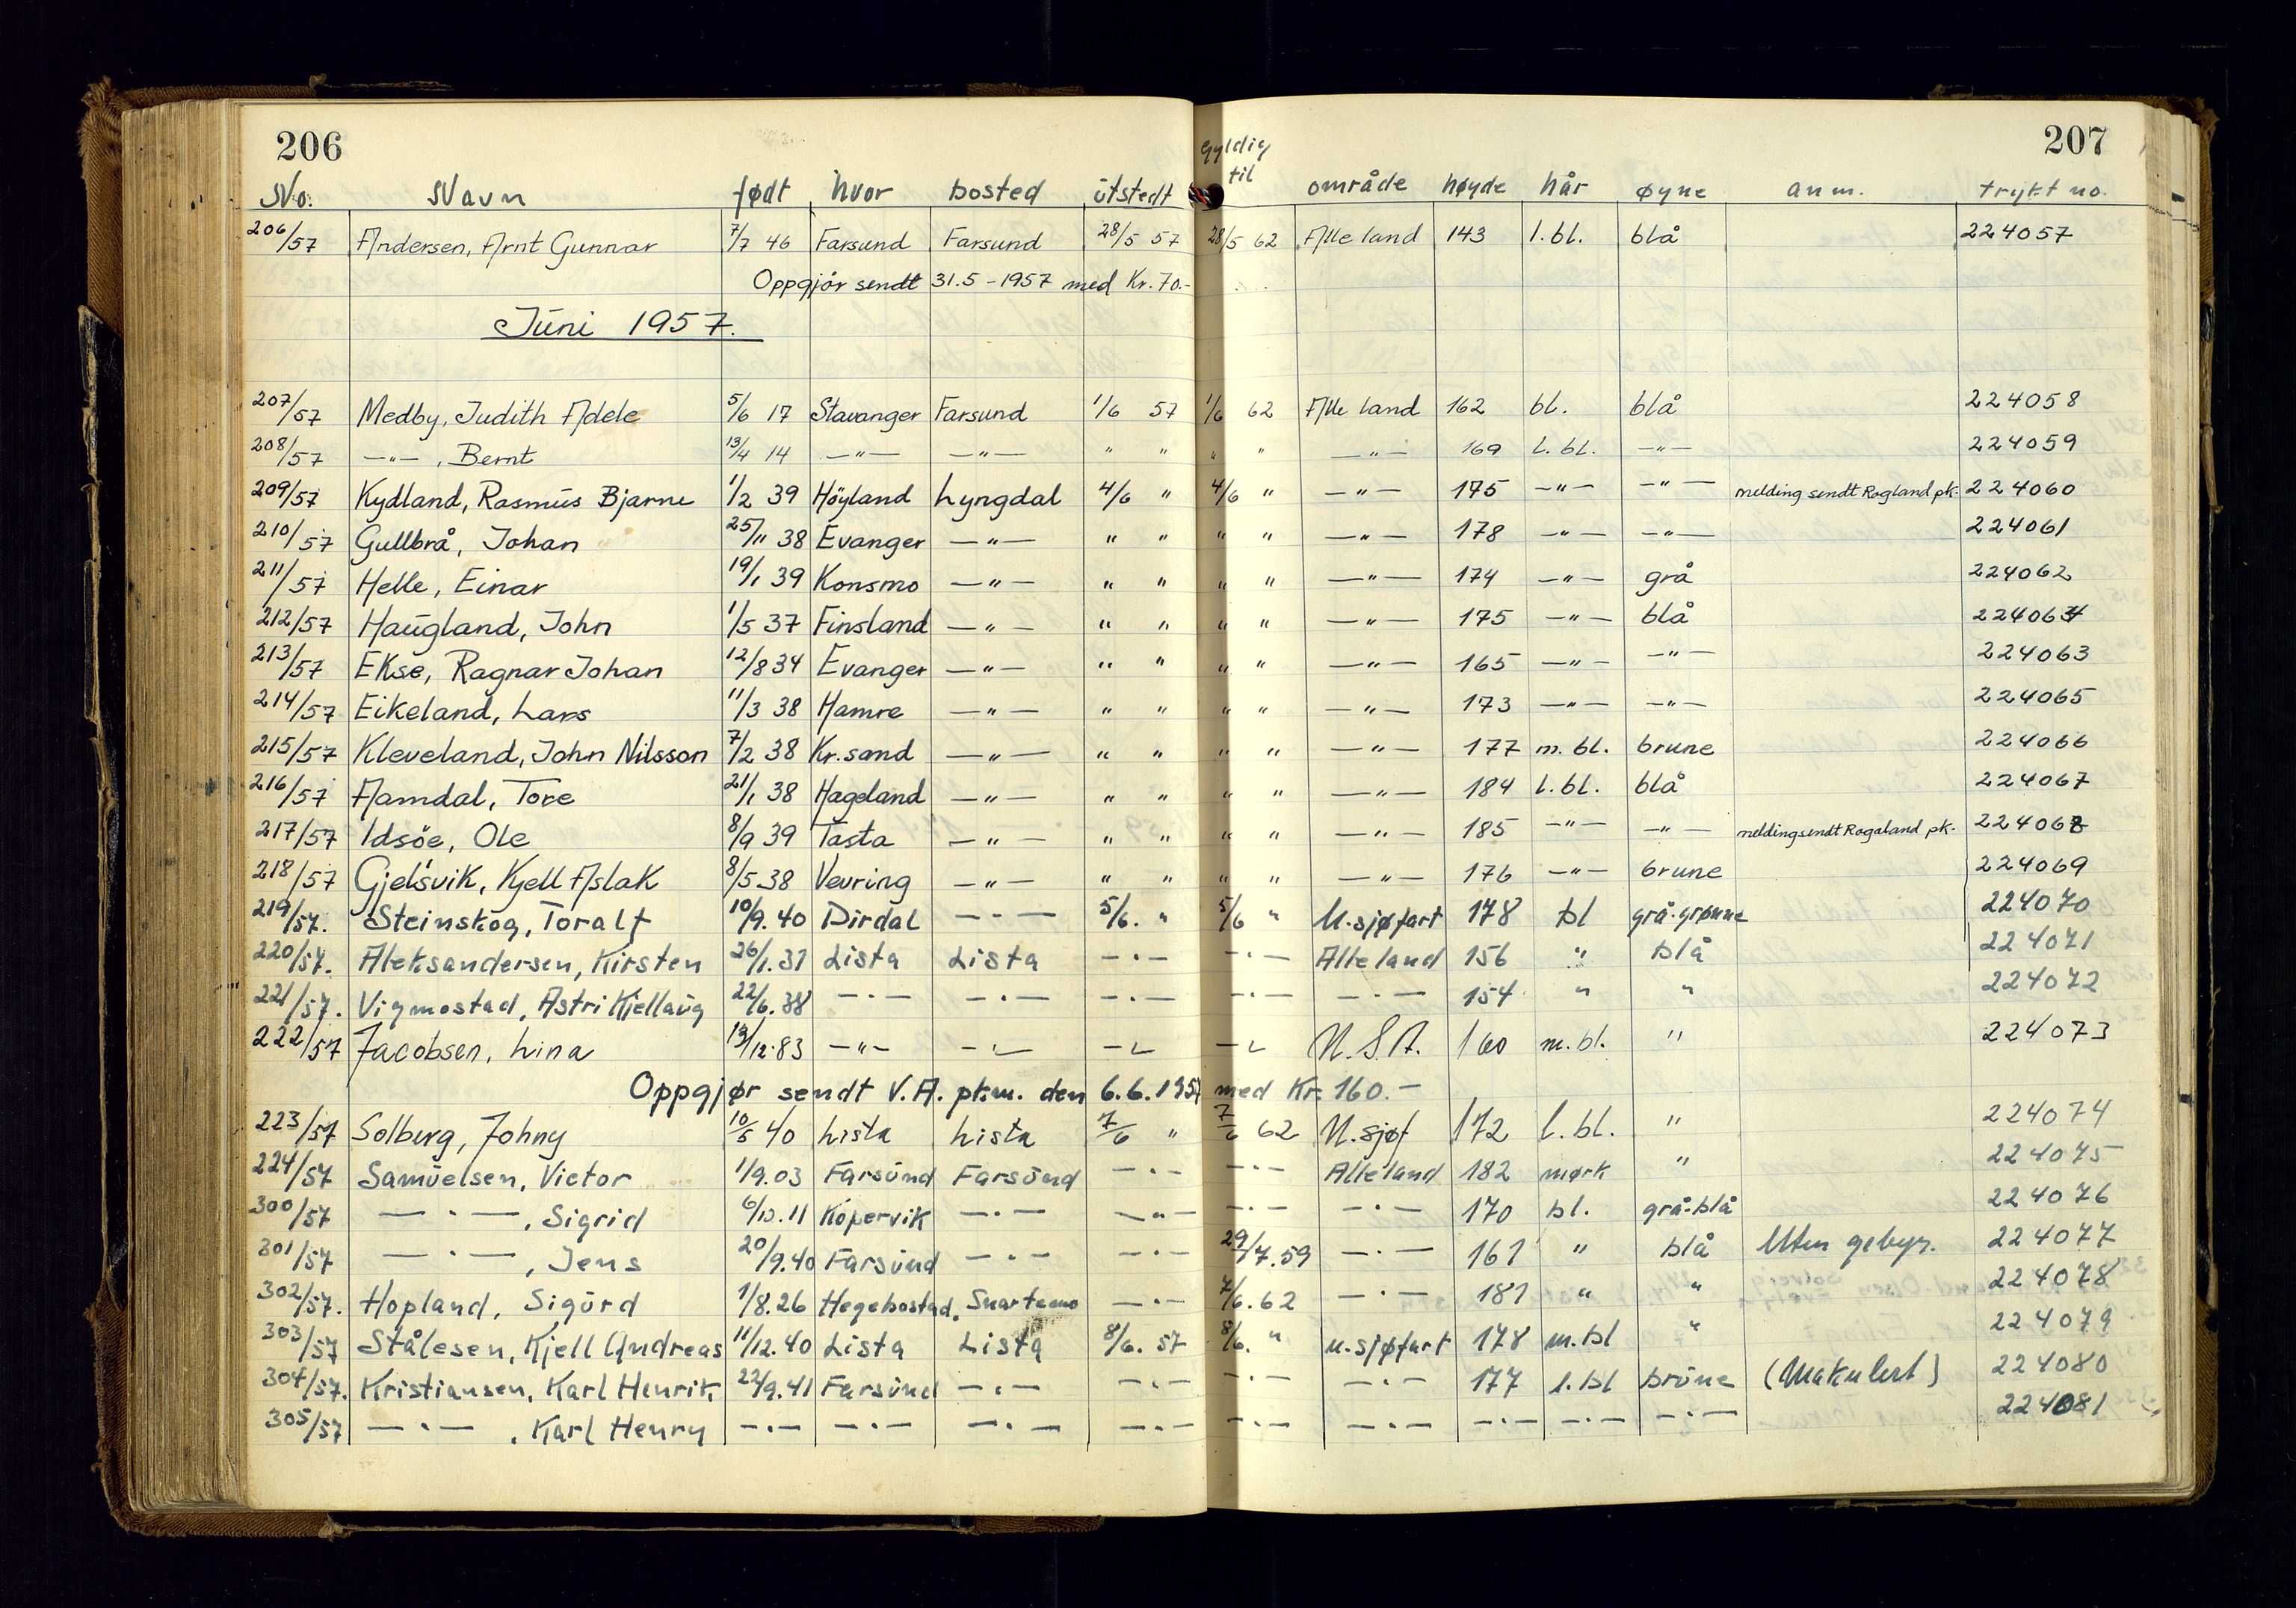 206 207
No. Navn født hvor bosted utstedt Gyldig til område høyde hår øyne anm. trykt no.
206/57 Andersen, Arnt Gunnar 7/7 46 Farsund Farsund 28/5 57 28/5 62 Alle land 143 l.bl. blå 224057
Oppgjör sendt 31.5-1957 med Kr.70.-
Juni 1957.
207/57 Medby, Judith Adele 5/6 17 Stavanger Farsund 1/6 57 1/6 62 Alle land 162 bl. blå 224058
208/57 —"— , Bernt 13/4 14 —"— —"— " " " " —"— 169 l.bl. —"— 224059
209/57 Kydland, Rasmus Bjarne 1/2 39 Höyland Lyngdal 4/6 " 4/6 " —"— 175 —"— —"— melding sendt Rogland pk. 224060
210/57 Gullbrå, Johan 25/11 38 Evanger —"— " " " " —"— 178 —"— —"— 224061
211/57 Helle, Einar 19/1 39 Konsmo —"— " " " " —"— 174 —"— grå 224062
212/57 Haugland, John 1/5 37 Finsland —"— " " " " —"— 175 —"— blå 224064
213/57 Ekse, Ragnar Johan 12/8 34 Evanger —"— " " " " —"— 165 —"— —"— 224063
214/57 Eikeland, Lars 11/3 38 Hamre —"— " " " " —"— 173 —"— —"— 224065
215/57 Kleveland, John Nilsson 7/2 38 Kr.sand —"— " " " " —"— 177 m.bl. brune 224066
216/57 Aamdal, Tore 21/1 38 Hageland —"— " " " " —"— 184 l.bl. blå 224067
217/57 Idsöe, Ole 8/9 39 Tasta —"— " " " " —"— 185 —"— —"— melding sendt Rogaland pk. 224068
218/57 Gjelsvik, Kjell Aslak 8/5.38 Vevring —"— " " " " —"— 176 —"— brune 224069
219/57. Steinskog, Toralf 10/9.40 Dirdal —"— 5/6. " 5/6 " U.sjøfart 178 bl grå-grønne 224070
220/57. Aleksandersen, Kirsten 26/1.37 Lista Lista —"— —"— Alle land 156 " blå 224071
221/57. Vigmostad, Astri Kjellaug 22/6.38 —"— —"— —"— —"— —"— 154 " " 224072
222/57 Jacobsen, Lina 13/12.83 —"— —"— —"— —"— U.S.A. 160 m.bl. " 224073
Oppgjør sendt V.A. pkm. den 6.6.1957 med Kr. 160.-
223/57 Solberg, Johny 10/5 40 Lista Lista 7/6 " 7/6 62 U.sjøf 172 l.bl. " 224074
224/57 Samuelsen, Victor 1/9.03 Farsund Farsund —"— —"— Alle land 182 mørk " 224075
300/57 —"— , Sigrid 6/10.11 Kopervik —"— —"— —"— —"— 170 bl. grå-blå 224076
301/57 —"— , Jens 20/9.40 Farsund —"— —"— 29/7.59 —"— 161 " blå Uten gebyr. 224077
302/57. Hopland, Sigurd 1/8.26 Hegebostad. Snartemo —"— 7/6.62 —"— 181 " " 224078
303/57 Stålesen, Kjell Andreas 11/12.40 Lista Lista 8/6.57 8/6. " u.sjøfart 178 m.bl " 224079
304/57. Kristiansen, Karl Henrik 22/9.41 Farsund —"— —"— —"— —"— 177 l.bl brune (Makulert) 224080
305/57 —"— , Karl Henry —"— —"— —"— —"— —"— —"— —"— —"— —"— 224081